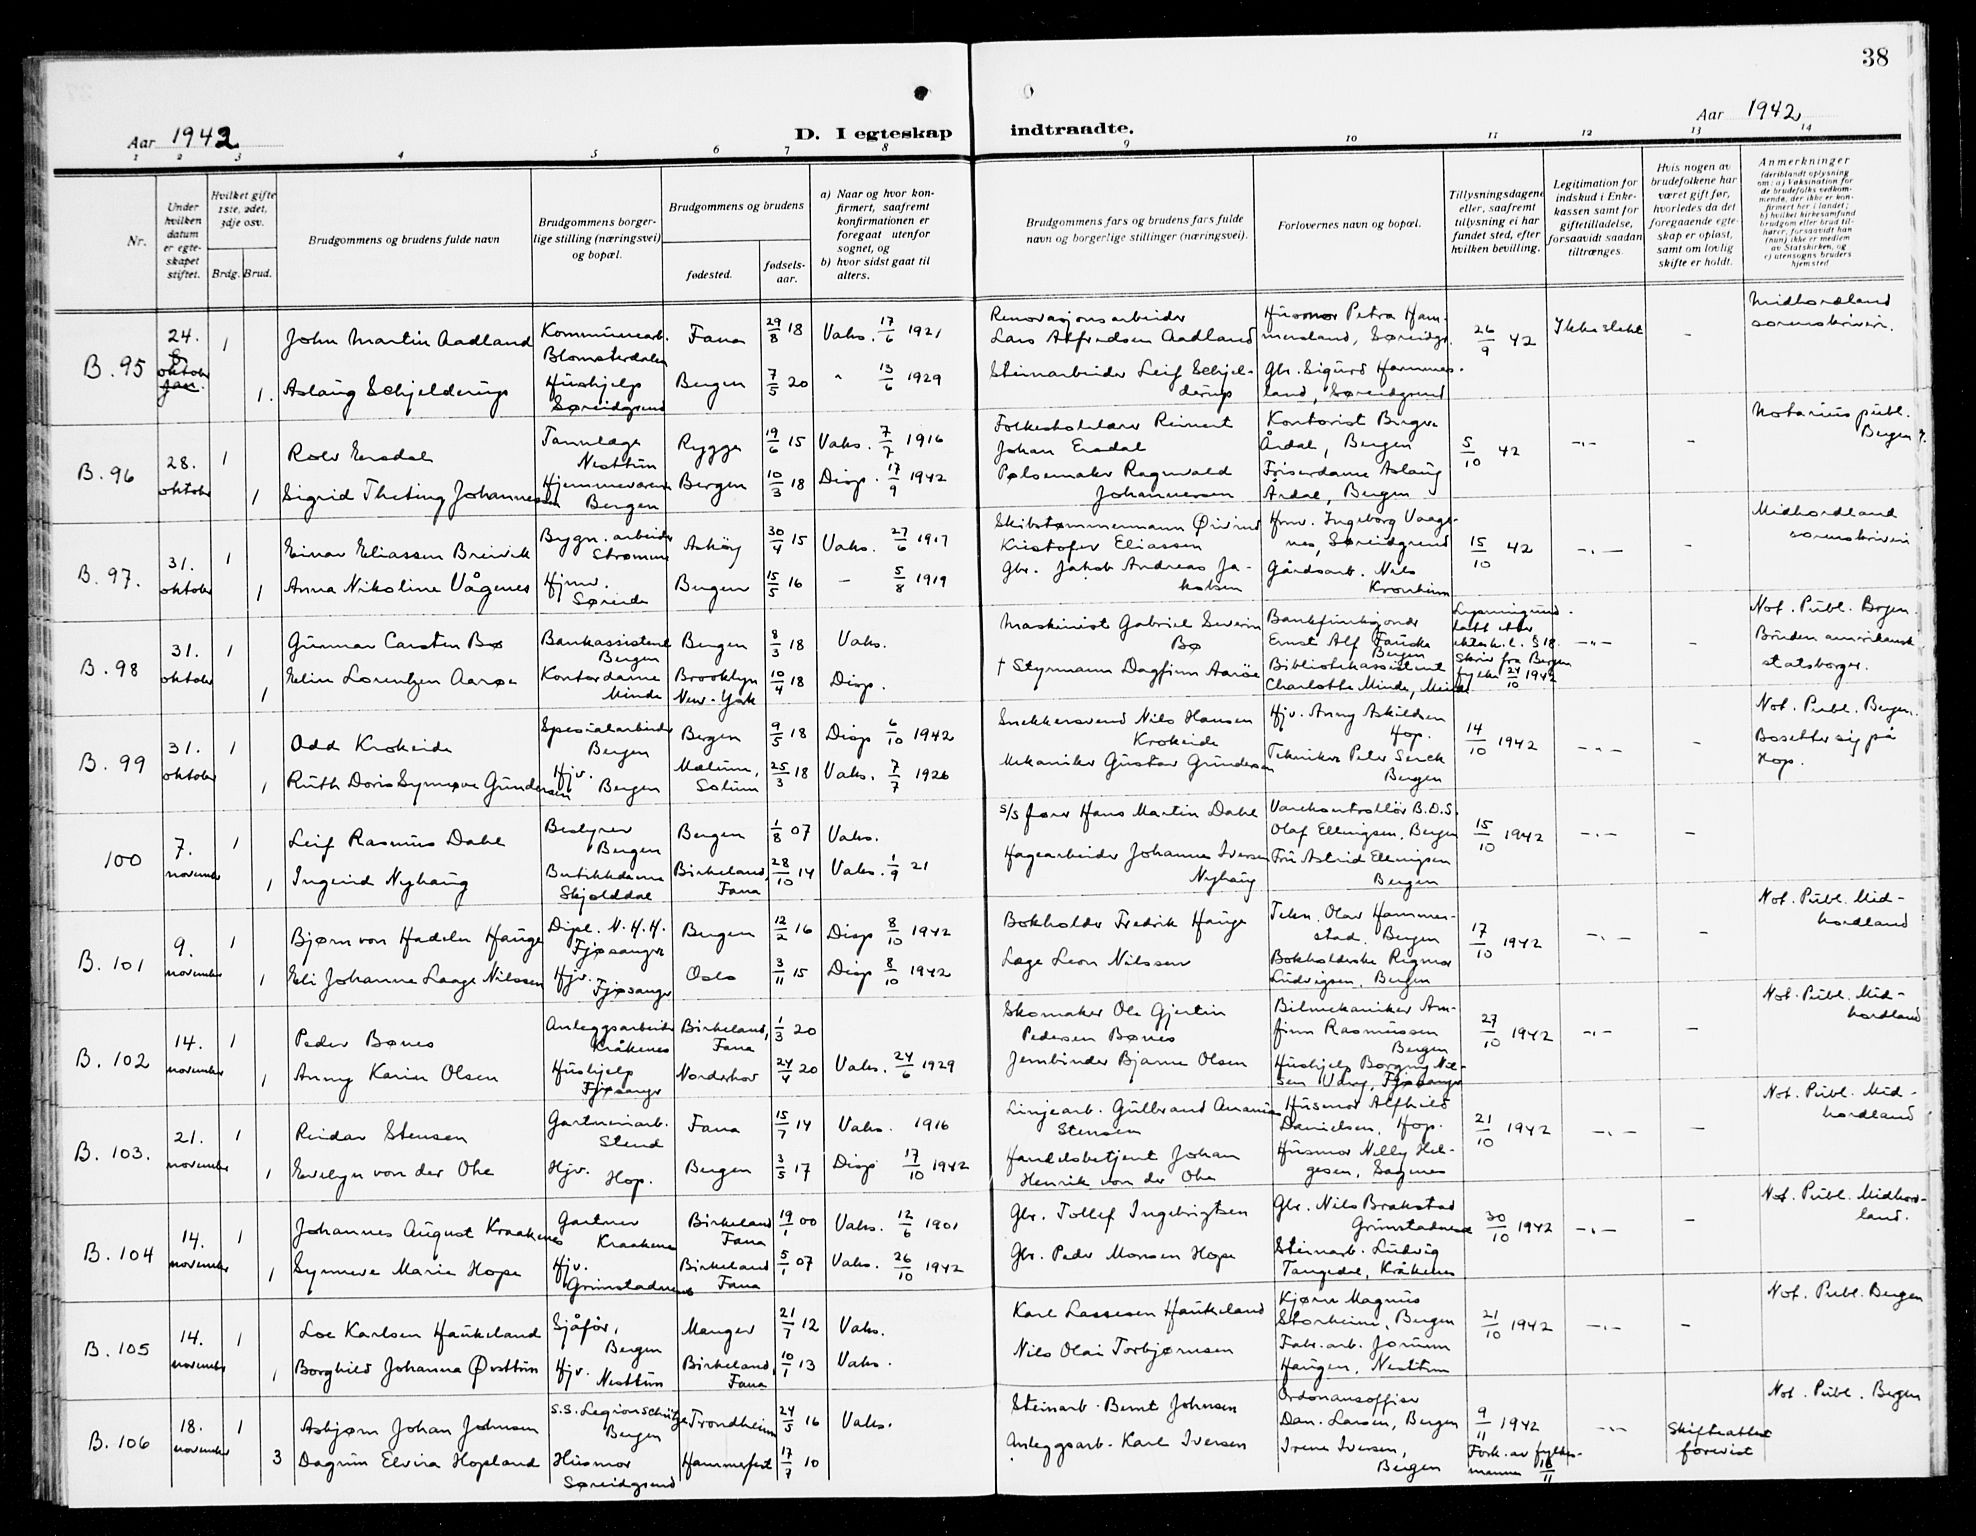 38
Aar 1942
D. I egteskap
indtraadte.
Aar 1942
1 2 3 4 5 6 7 8 9 10 11 12 13 14
Nr.
Under hvilken datum er egte-skapet stiftet.
Hvilket gifte 1ste, 2det, 3dje osv.
Brdg. Brud.
Brudgommens og brudens fulde navn
Brudgommens borger-lige stilling (næringsvei) og bopæl.
Brudgommens og brudens
fødested.
fødsels-aar.
a) Naar og hvor kon-firmert, saafremt konfirmationen er foregaat utenfor sognet, og
b) hvor sidst gaat til alters.
Brudgommens fars og brudens fars fulde navn og borgerlige stillinger (næringsvei).
Forlovernes navn og bopæl.
Tillysningsdagene eller, saafremt tillysning ei har fundet sted, efter hvilken bevilling.
Legitimation for indskud i Enke-kassen samt for giftetilladelse, forsaavidt saadan tiltrænges.
Hvis nogen av brudefolkene har været gift før, hvorledes da det foregaaende egte-skap er opløst, samt om lovlig skifte er holdt.
Anmerkninger (deriblandt oplysning om: a) Vaksination for de brudefolks vedkom-mende, der ikke er kon-firmert her i landet; b) hvilket kirkesamfund brudgom eller brud til-hører, forsaavidt han (hun) ikke er medlem av Statskirken, og c) utensogns bruders hjemsted
B. 95 24. oktober 1 John Martin Aadland Kommunearb. Blomsterdalen Fana 29/8 18 Vaks. 17/6 1921 Renovasjonsarbeider Lars Alfredsen Aadland Husmor Petra Ham-mersland, Søreidgr. 26/9 42 Ikke slekt - Midhordland sorenskriveri.
1. Aslaug Schjelderup Hushjelp Søreidgrend Bergen 7/5 20 " 13/6 1929 Steinarbeider Leif Schjel-derup Gbr. Sigurd Hammers-land, Søreidgrend
B. 96 28. oktober 1 Rolv Ersdal Tannlege Nesttun Rygge 19/6 15 Vaks. 7/7 1916 Folkeskolelærer Reinert Johan Ersdal Kontorist Birger Årdal, Bergen 5/10 42 -"- - Notarius publ. Bergen
1 Sigrid Theting Johannessen Hjemmeværende Bergen Bergen 10/3 18 Disp. 17/9 1942 Pølsemaker Ragnvald Johannessen Friserdame Aslaug Årdal, Bergen
B. 97. 31. oktober 1 Einar Eliassen Breivik Bygn. arbeider Strømme Askøy 30/4 15 Vaks. 27/6 1917 Skibstømmermann Øivind Kristofer Eliassen Hmr. Ingeborg Vaage-nes, Søreidgrend 15/10 42 -"- - Midhordland sorenskriveri
1 Anna Nikoline Vågenes Hjmv. Søreide Bergen 15/5 16 - 5/8 1919 Gbr. Jakob Andreas Ja-kobsen Gårdsarb. Nils Kronheim
B. 98 31. oktober 1 Gunnar Carsten Bø Bankassistent Bergen Bergen 8/3 18 Vaks. Maskinist Gabriel Severin Bø Bankfunksjonær Ernst Alf Fauske Bergen Lysningsund-tatt etter ektesk. l. § 18. Skriv fra Bergen fylke 24/10 1942 -"- - Not. Publ. Bergen. Bruden amerikansk statsborger.
1 Elin Lorentzen Aarøe Kontordame Minde Brooklyn New-York 10/4 18 Disp. † Styrmann Dagfinn Aarøe Bibliotekassistent Charlotte Minde, Minde
B. 99 31. oktober 1 Odd Krokeide Spesialarbeider Bergen Bergen 9/5 18 Disp 6/10 1942 Snekkersvend Nils Hansen Krokeide Hjv. Anny Askildsen Hop. 14/10 1942 -"- - Not. Publ. Bergen. Bosetter sig på Hop.
1 Ruth Doris Synnøve Gundersen Hjv. Bergen Mælum, Solum 25/3 18 Vaks. 7/7 1926 Mekaniker Gustav Gundersen Tekniker Peter Serck Bergen
100 7. november 1 Leif Rasmus Dahl Bestyrer Bergen Bergen 1/8 07 Vaks. s/s fører Hans Martin Dahl Varekontrollør B.D.S. Olaf Ellingsen, Bergen 15/10 1942 -"- -
1 Ingerid Nyhaug Butikkdame Skjolddal Birkeland, Fana 28/10 14 Vaks. 1/9 21 Hagearbeider Johannes Iversen Nyhaug Fru Astrid Ellingsen Bergen
B. 101 9. november 1 Bjørn von Hadeln Hauge Dipl. N.H.H. Fjøsanger Bergen 12/2 16 Disp 8/10 1942 Bokholder Fredrik Hauge Tekn. Olav Hammer-stad, Bergen 17/10 1942 -"- - Not. Publ. Mid-hordland
1 Eli Johanne Laage Nilssen Hjv. Fjøsanger Oslo 3/11 15 Disp 8/10 1942 Lage Leon Nilssen Bokholderske Rigmor Ludvigsen, Bergen
B. 102 14. november 1 Peder Bønes Anleggsarbeider Kråkenes Birkeland, Fana 1/3 20 Skomaker Ole Gjertin Pedersen Bønes Bilmekaniker Arn-finn Rasmussen Bergen 27/10 1942 -"- - Not. Publ. Mid-hordland
1 Anny Karin Olsen Hushjelp Fjøsanger Norderhov 24/4 20 Vaks. 24/6 1929 Jernbinder Bjarne Olsen Hushjelp Borgny Nil-sen Fjøsanger
B. 103. 21. november 1 Reidar Stensen Gartneriarb. Stend Fana 15/7 14 Vaks. 1916 Linjearb. Gulbrand Ananias Stensen Husmor Alfhild Danielsen, Hop. 21/10 1942 -"- - Not. Publ. Mid-hordland
1 Evelyn von der Ohe Hjv. Hop. Bergen 3/5 17 Disp 17/10 1942 Handelsbetjent Johan Henrik von der Ohe Husmor Nelly Hel-gesen,
B. 104 14. november 1 Johannes August Kraakenes Gartner Kraakenes Birkeland Fana 19/1 00 Vaks. 12/6 1901 Gbr. Tollef Ingebrigtsen Gbr. Nils Brakstad Grimstadnes 30/10 1942 -"- - Not. Publ. Midhord-land.
1 Synneve Marie Hope Hjv. Grimstadnes Birkeland Fana 5/1 07 Vaks. 26/10 1942 Gbr. Peder Monsen Hope Steinarb. Ludvig Tangedal, Kråkenes
B. 105 14. november 1 Loe Karlsen Haukeland Sjåfør, Bergen Manger 21/7 12 Vaks. Karl Lassesen Haukeland Kjører Magnus Storheim, Bergen 21/10 1942 -"- - Not. Publ. Bergen
1 Borghild Johanna Øvsttun Hjv. Nesttun Birkeland, Fana 10/1 13 Vaks. Nils Olai Torbjørnsen Fabr. arb. Jorunn Haugen, Nesttun
B. 106 18. november 1 Asbjørn Johan Johnsen S.S. Legionschütze Bergen Trondheim 24/5 16 Vaks. Steinarb. Bernt Johnsen Ordonansoffiser Dan. Larsen, Bergen 9/11 1942 Fork. av fylkes-mannen 16/11 -"- Skifteattest forevist Not. Publ. Bergen
3 Dagrun Elvira Hopland Husmor Søreidgrend Hammerfest 17/7 10 Anleggsarb. Karl Iversen Irene Iversen, Bergen